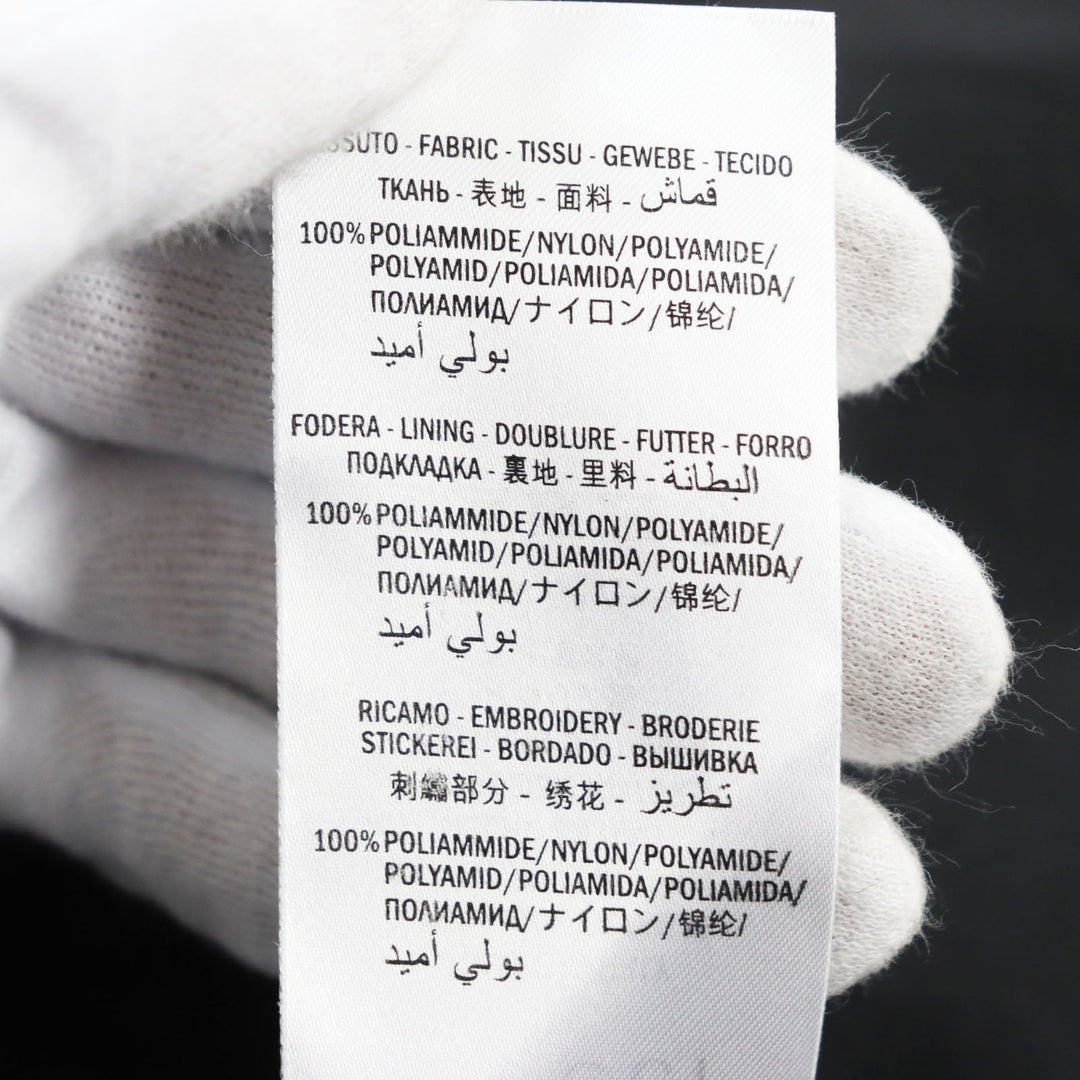 - FABRIC - TISSU - GEWEBE - TECIDO
ТКАНЬ - 表地 - 面料 - قماش
100% POLIAMMIDE/NYLON/POLYAMIDE/
POLYAMID/POLIAMIDA/POLIAMIDA/
ПОЛИАМИД/ナイロン/锦纶/
بولي أميد
FODERA - LINING - DOUBLURE - FUTTER - FORRO
ПОДКЛАДКА - 裏地 - 里料 - البطانة
100% POLIAMMIDE/NYLON/POLYAMIDE/
POLYAMID/POLIAMIDA/POLIAMIDA/
ПОЛИАМИД/ナイロン/锦纶/
بولي أميد
RICAMO - EMBROIDERY - BRODERIE
STICKEREI - BORDADO - ВЫШИВКА
刺繍部分 - 绣花 - تطريز
100% POLIAMMIDE/NYLON/POLYAMIDE/
POLYAMID/POLIAMIDA/POLIAMIDA/
ПОЛИАМИД/ナイロン/锦纶/
بولي أميد